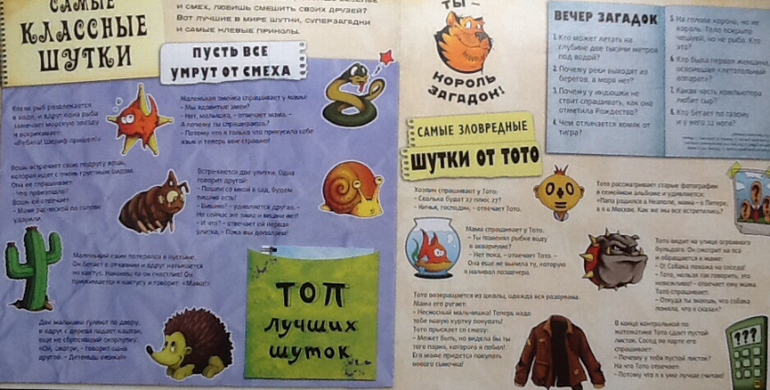 САМЫЕ
КЛАССНЫЕ
ШУТКИ
и смех, любишь смешить своих друзей?
Вот лучшие в мире шутки, суперзагадки
и самые клевые приколы.
ПУСТЬ ВСЕ
УМРУТ ОТ СМЕХА
в воде, и вдруг одна рыба
замечает морскую звезду
и вскрикивает:
Маленькая змейка спрашивает у мамы:
– Мы ядовитые змеи?
– Нет, малышка, – отвечает мама. –
А почему ты спрашиваешь?
– Потому что я только что прикусила себе
язык и теперь мне страшно!
Вошь встречает свою подругу вошь,
которая идет с очень грустным видом.
Она ее спрашивает:
Что произошло?
Вошь ей отвечает:
– Меня расческой по голове
ударили.
Встречаются две улитки. Одна
говорит другой:
– Пошли со мной в сад, будем
вишню есть!
– Вишню? – удивляется другая. –
Но сейчас же зима и вишни нет!
– И что? – отвечает ей первая
улитка, – Пока мы доползем!
Маленький ежик потерялся в пустыне.
Он бегает в отчаянии и вдруг натыкается
на кактус. Наконец-то он счастлив! Он
прижимается к кактусу и говорит: «Мама!»
Два мальчика гуляют по двору,
и вдруг с дерева падает каштан,
еще не сбросивший скорлупку.
«Ой, смотри, – говорит одна
ТОП
лучших
шуток
ТЫ –
КОРОЛЬ
ЗАГАДОК!
ВЕЧЕР ЗАГАДОК
1. Кто может летать на
глубине две тысячи метров
под водой?
2. Почему реки выходят из
берегов, а моря нет?
3. Почему у индюшки не
стоит спрашивать, как она
отметила Рождество?
4. Чем отличается хомяк от
тигра?
5. На голове корона, но не
король. Тело покрыто
чешуей, но не рыба. Кто
это?
6. Кто была первая женщина,
освоившая «летательный
аппарат»?
7. Какая часть компьютера
любит сыр?
8. Кто бегает по газону
и у него 22 ноги?
САМЫЕ ЗЛОВРЕДНЫЕ
ШУТКИ ОТ ТОТО
Хозяин спрашивает у Тото:
– Сколько будет 27 плюс 27?
– Ничья, господин, – отвечает Тото.
Мама спрашивает у Тото:
– Ты поменял рыбке воду
в аквариуме?
– Нет пока, – отвечает Тото. –
Она еще не выпила ту, которую
я наливал позавчера.
Тото возвращается из школы, одежда вся разорвана.
Мама его ругает:
– Несносный мальчишка! Теперь надо
тебе новую куртку покупать!
Тото прыскает со смеху:
– Может быть, но видела бы ты
того парня, которого я побил!
Его маме придется покупать
нового сыночка!
Тото рассматривает старые фотографии
в семейном альбоме и удивляется:
«Папа родился в Неаполе, мама – в Питере,
а я в Москве. Как же мы все встретились?
Тото видит на улице огромного
бульдога. Он смотрит на пса
и обращается к маме:
– О! Собака похожа на соседа!
– Тото, нельзя так говорить, это
невежливо! – отвечает ему мама.
Тото спрашивает:
– Откуда ты знаешь, что собака
поняла, что я сказал?
В конце контрольной по
математике Тото сдает пустой
листок. Сосед по парте его
спрашивает:
– Почему у тебя пустой листок?
На что Тото отвечает:
– Потому что я в уме лучше считаю!
???